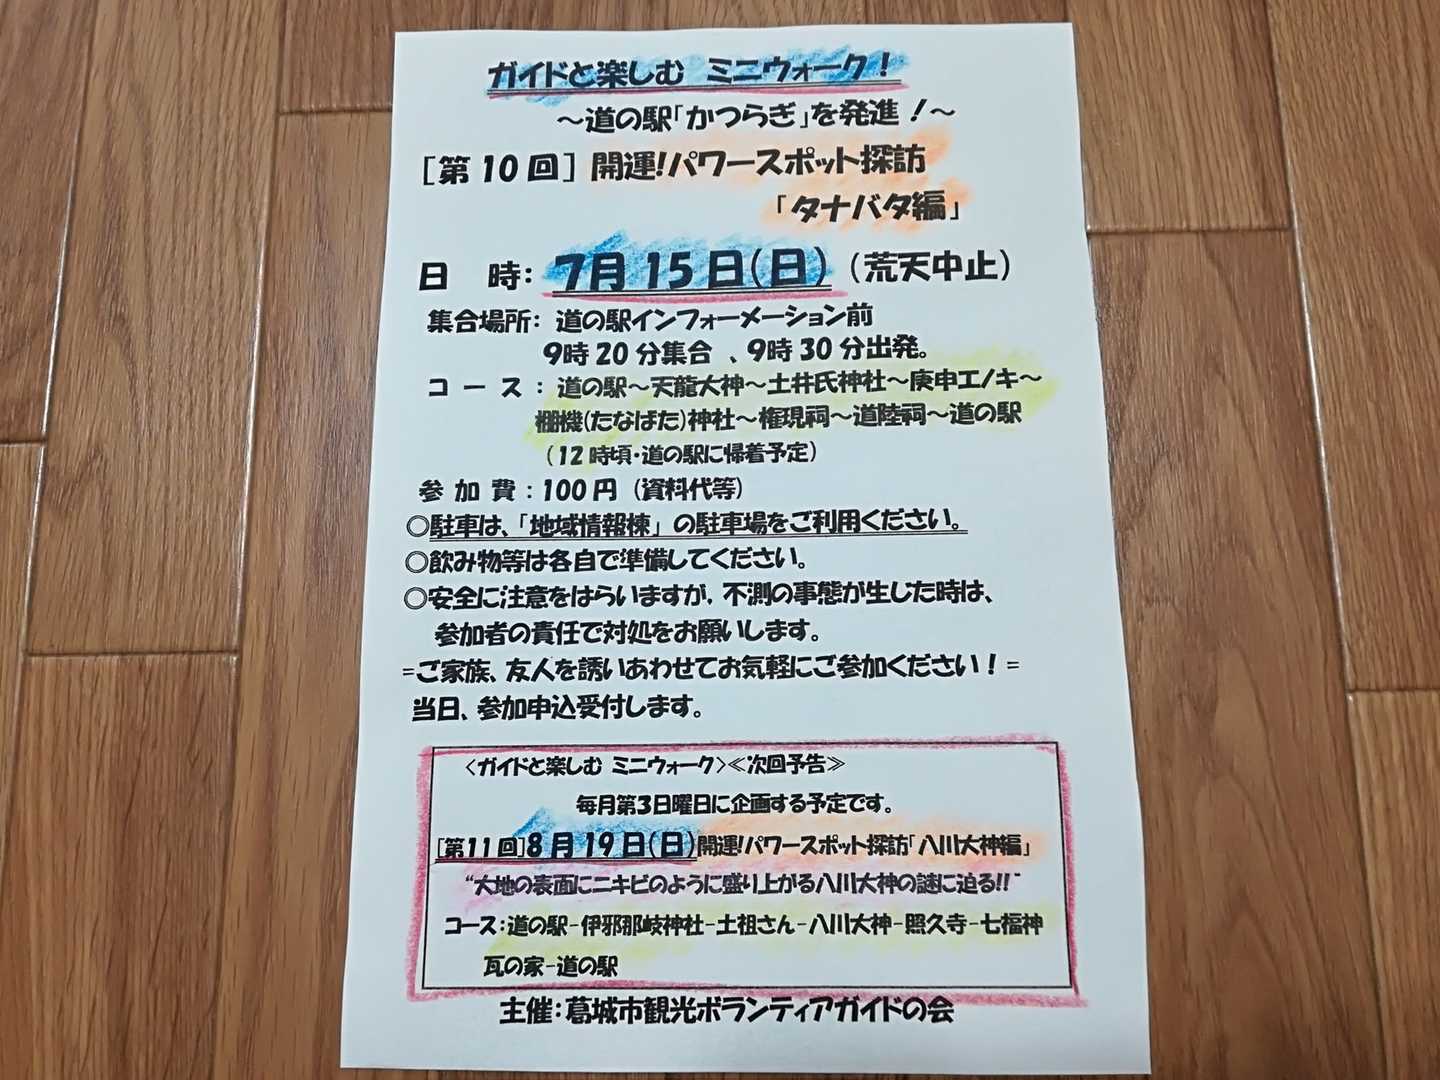 ガイドと楽しむ ミニウォーク！
～道の駅「かつらぎ」を発進！～
［第10回］開運！パワースポット探訪
「タナバタ編」
日　時：７月15日(日)（荒天中止）
集合場所：道の駅インフォーメーション前
9時20分集合 、9時30分出発。
コース：道の駅～天龍大神～土井氏神社～庚申エノキ～
棚機(たなばた)神社～権現祠～道陸祠～道の駅
（12時頃・道の駅に帰着予定）
参加費：100円（資料代等）
○駐車は、「地域情報棟」の駐車場をご利用ください。
○飲み物等は各自で準備してください。
○安全に注意をはらいますが、不測の事態が生じた時は、
参加者の責任で対処をお願いします。
=ご家族、友人を誘いあわせてお気軽にご参加ください！=
当日、参加申込受付します。
〈ガイドと楽しむ ミニウォーク〉≪次回予告≫
毎月第3日曜日に企画する予定です。
［第11回］8月19日(日)開運！パワースポット探訪「八川大神編」
“大地の表面にニキビのように盛り上がる八川大神の謎に迫る!!”
コース：道の駅-伊邪那岐神社-土祖さん-八川大神-照久寺-七福神
瓦の家-道の駅
主催：葛城市観光ボランティアガイドの会